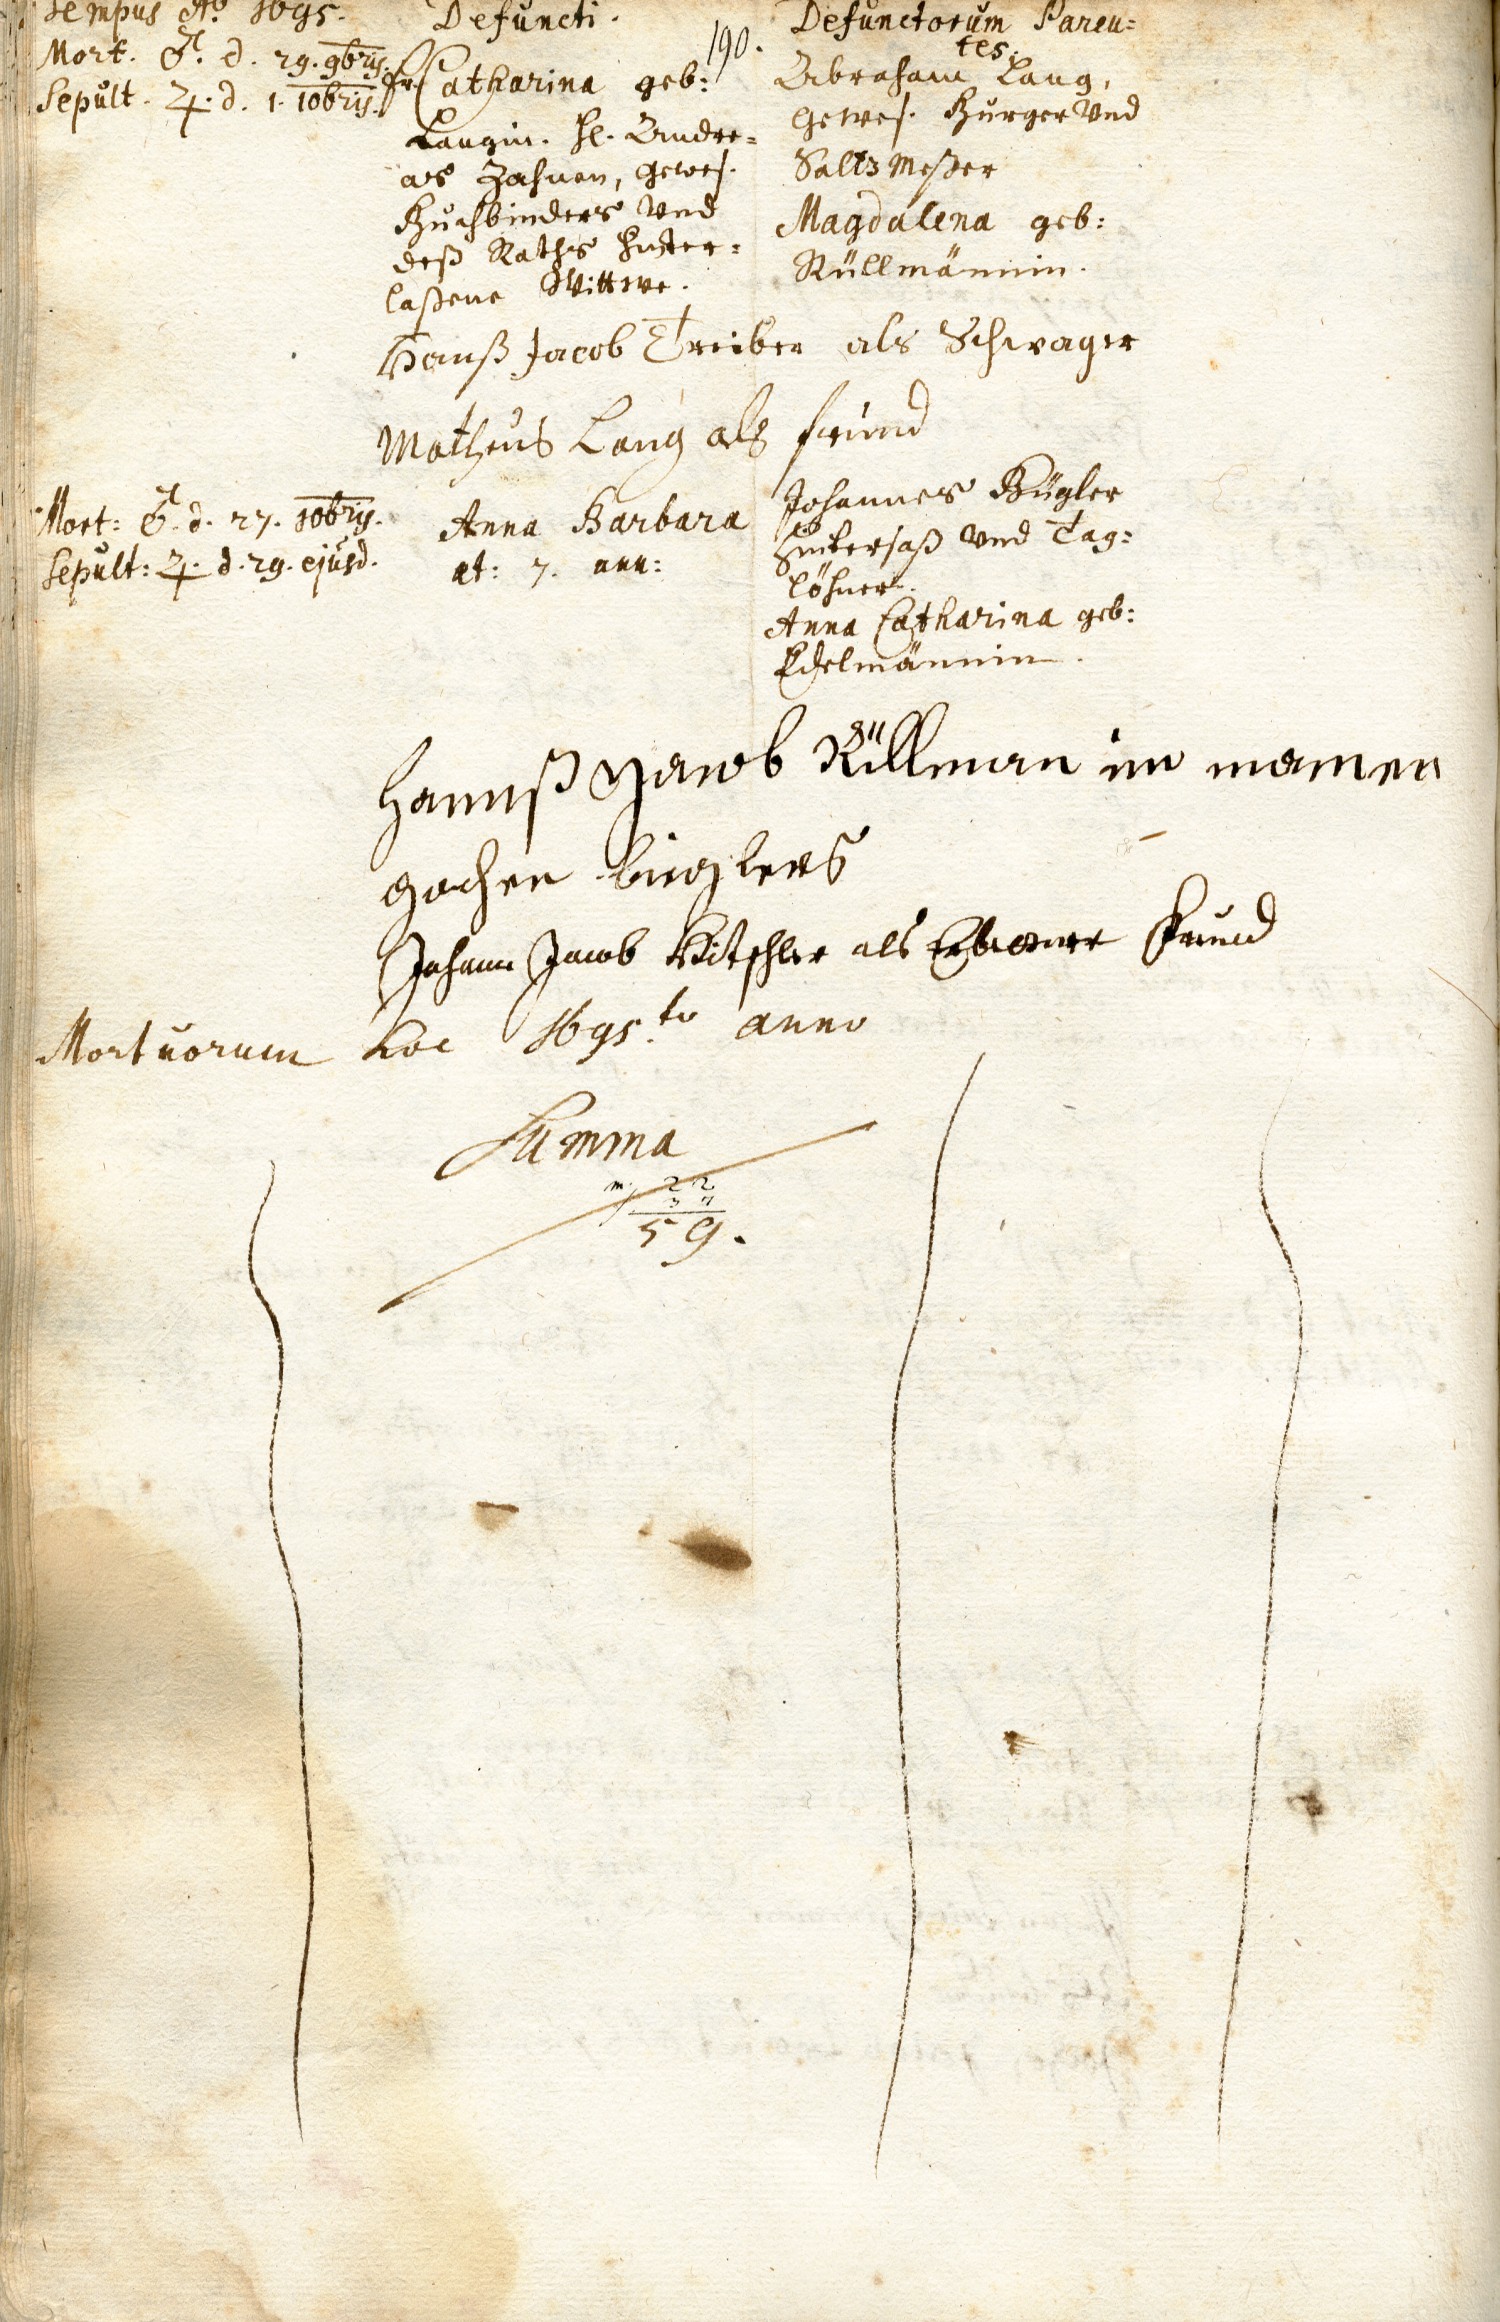 Tempus Aō. 1695.
Defuncti.
190.
Defunctorum Paren=
tes.
Mort. ♂. d. 29. 9bris.
Sepult. ♃. d. 1. 10bris.
fr. Catharina geb:
Langin. H. Andre=
as Zahnen, gewes.
Buchbinders Vnd
deß Raths hinter=
laßene Wittwe.
Abraham Lang,
gewes. Burger Vnd
Saltz Meßer
Magdalena geb:
Rüllmännin.
Hanß Jacob Treiber als Schwager
Matheus Lang als freund
Mort: ♂. d. 27. 10bris.
Sepult: ♃. d. 29. ejusd.
Anna Barbara
æt: 7. ann:
Johannes Bügler
Hintersaß Vnd Tag=
löhner.
Anna Catharina geb:
Edelmännin.
Hannß Jacob Rüllman im namen
büglers
Johann Jacob Kitschler als Freund
Mortuorum hoc 1695.to anno
Summa
m. 22
f. 37
59.